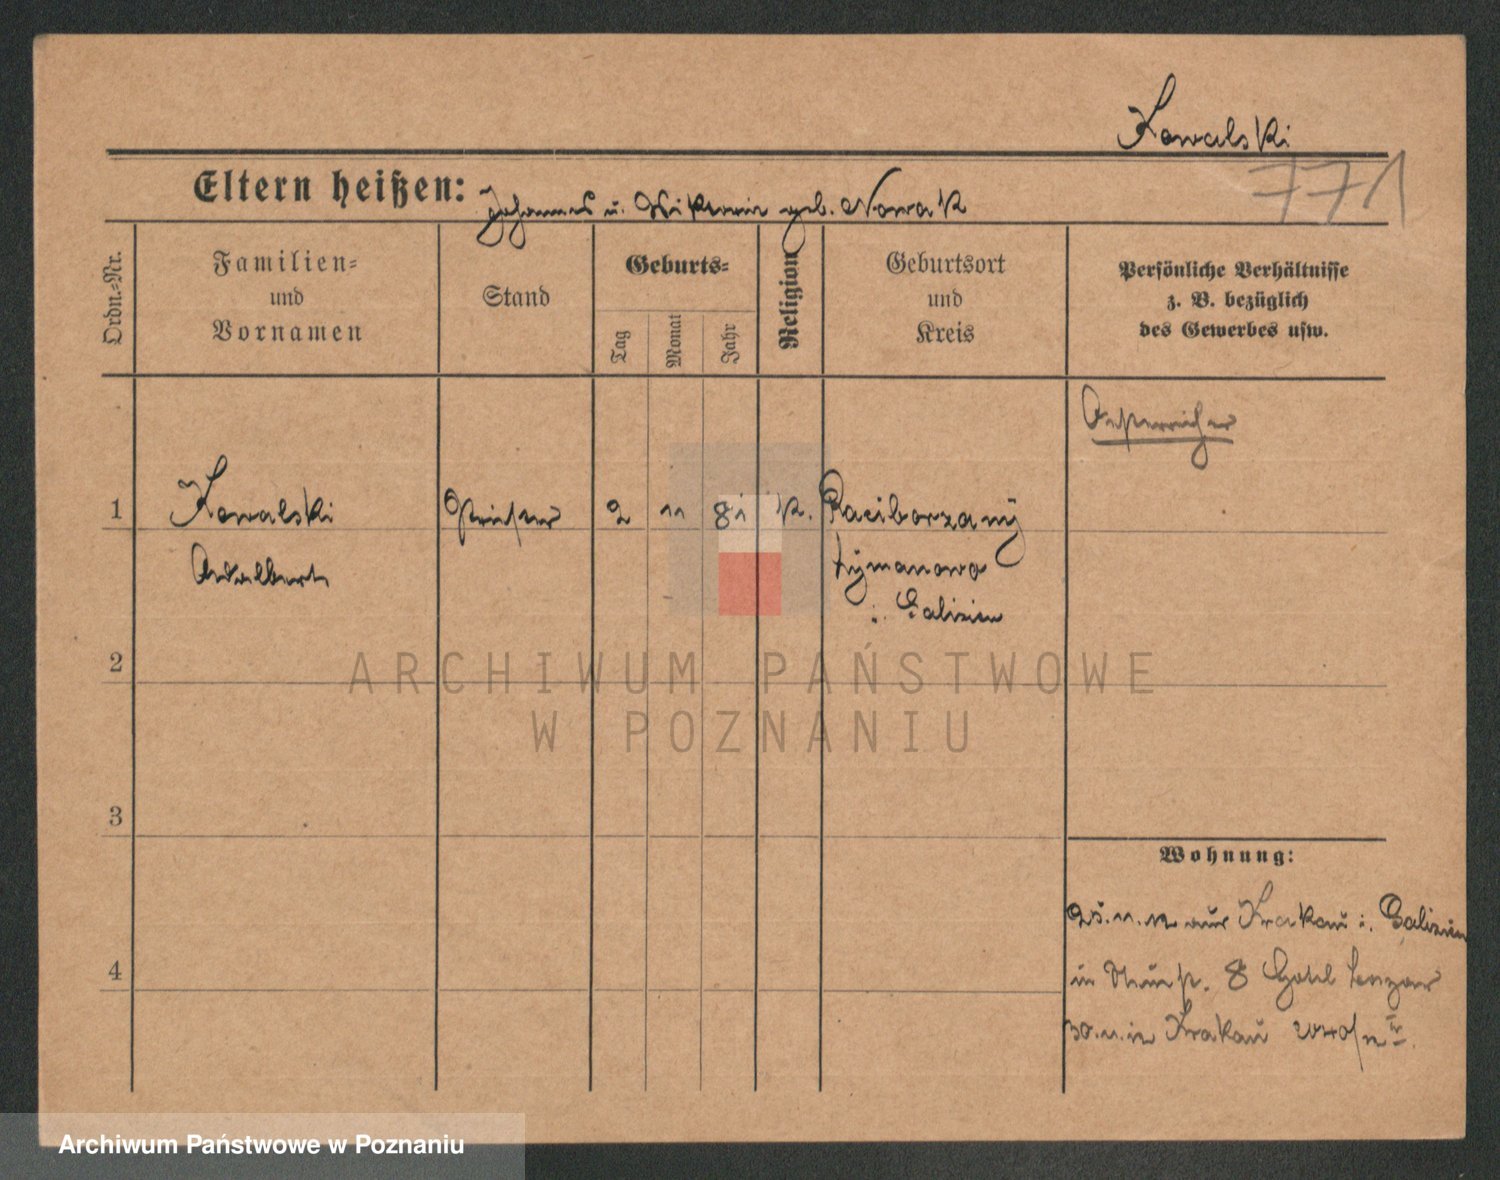 Kowalski
771
Eltern heißen: Johannes u. Viktoria geb. Nowak
Ordn.-Nr.
Familien-
und
Vornamen
Stand
Geburts-
Tag
Monat
Jahr
Religion
Geburtsort
und
Kreis
Persönliche Verhältnisse
z. B. bezüglich
des Gewerbes usw.
Oesterreicher
1 Kowalski Priester 2 11 81 K. Raciborzany
Adalbert Lymanowa
i. Galizien
2
ARCHIWUM PAŃSTWOWE
W POZNANIU
3
Wohnung:
25.11.12 aus Krakau i. Galizien
in 8 Hotel
4
30.11.12 Krakau
Archiwum Państwowe w Poznaniu